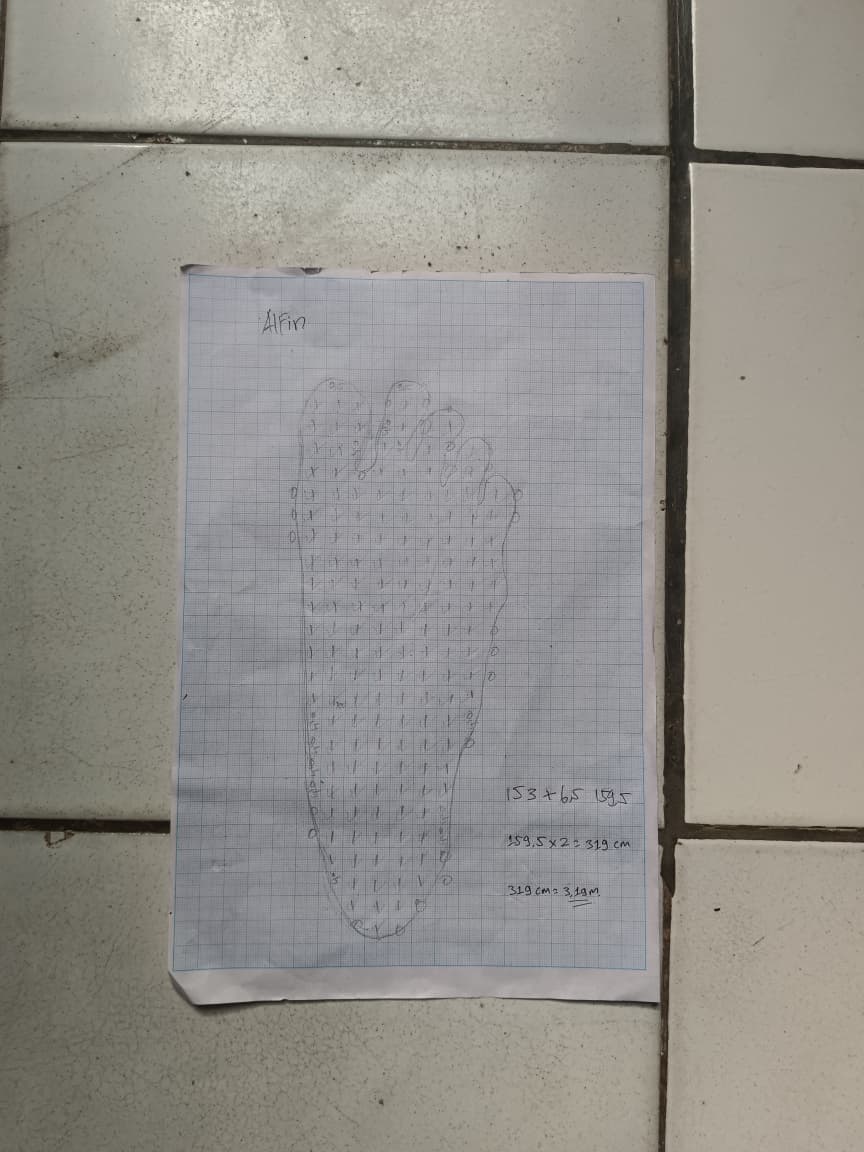 Alfin
153 + 6,5 159,5
159,5 x 2 = 319 cm
319 cm = 3,19 m